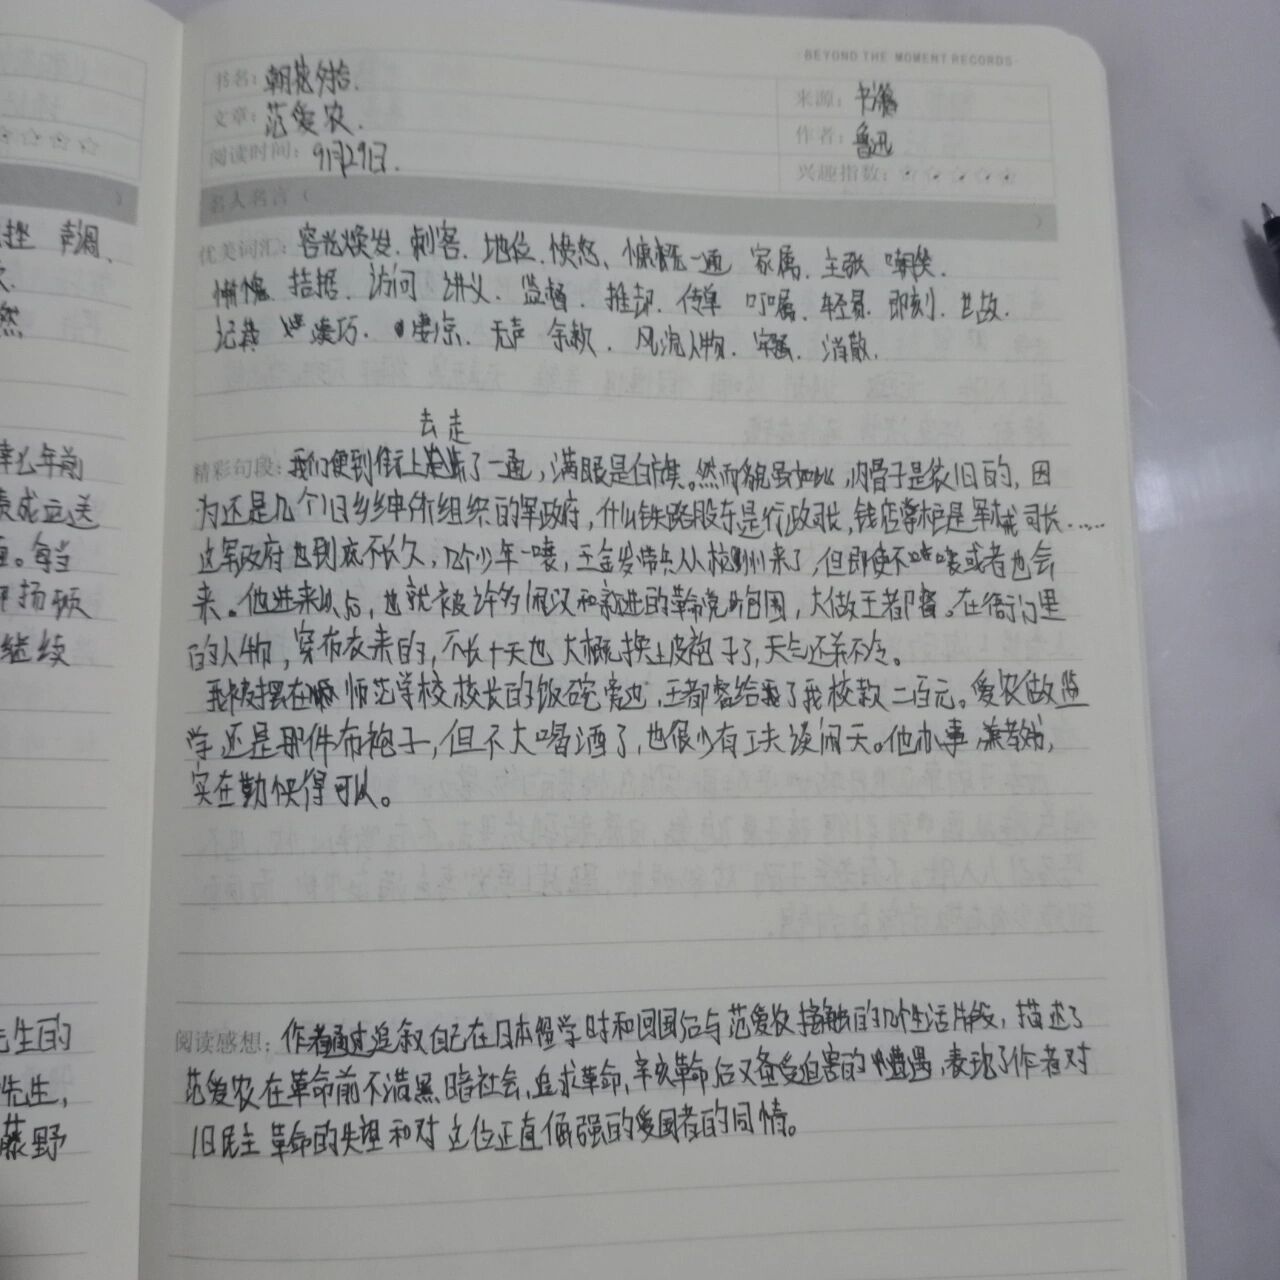 BEYOND THE MOMENT RECORDS
书名：朝花夕拾.
来源：书籍
文章：范爱农.
作者：鲁迅
阅读时间：9月29日.
兴趣指数：☆☆☆☆☆
名人名言（ ）
优美词汇：容光焕发. 刺客. 地位. 愤怒、慷慨一通 家属. 主张 嘲笑.
惭愧. 拮据. 访问 讲义. 监督. 推却. 传单 叮嘱. 轻易. 即刻. 世故.
记载 凑巧. 凄凉. 无声 余款. 风流人物. 军械. 消散.
去走
精彩句段：我们便到街上 了一通，满眼是白旗。然而貌虽如此，内骨子是依旧的，因
为还是几个旧乡绅所组织的军政府，什么铁路股东是行政司长，钱店掌柜是军械司长……
这军政府也到底不长久，几个少年一嚷，王金发带兵从杭州来了，但即使不嚷或者也会
来。他进来以后，也就被许多闲汉和新进的革命党所包围，大做王都督。在衙门里
的人物，穿布衣来的，不长十天也大概换上皮袍子了，天气还并不冷。
我被摆在师范学校校长的饭碗旁边，王都督给了我校款二百元。爱农做监
学还是那件布袍子，但不大喝酒了，也很少有工夫谈闲天。他办事，兼教书，
实在勤快得可以。
阅读感想：作者通过追叙自己在日本留学时和回国后与范爱农接触的几个生活片段，描述了
范爱农在革命前不满黑暗社会，追求革命，辛亥革命后又备受迫害的遭遇，表现了作者对
旧民主革命的失望和对这位正直倔强的爱国者的同情。
挫 声调
然
年前
成立送
。每当
扬顿
继续
先生的
先生，
藤野